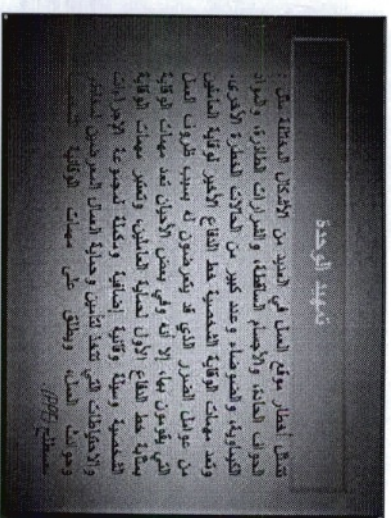 تمهيد الوحدة
تتمثل أخطار موقع العمل في العديد من الأشكال المختلفة مثل:
الحواف الحادة، والأجسام الساقطة، والشرارات المتطايرة، والمواد
الكيماوية، والضوضاء وعدد كبير من الحالات الخطرة الأخرى.
وتعد مهمات الوقاية الشخصية خط الدفاع الأخير لوقاية العاملين
من عوامل الضرر الذي قد يتعرضون له بسبب ظروف العمل
التي يقومون بها، إلا أنه وفي بعض الأحيان تعد مهمات الوقاية
بمثابة خط الدفاع الأول لحماية العاملين، وتعتبر مهمات الوقاية
الشخصية وسيلة وقائية إضافية ومكملة لمجموعة الإجراءات
والاحتياطات التي تتخذ لتأمين وحماية العمال المعرضين لمخاطر
وحوادث العمل، ويطلق على مهمات الوقاية الشخصية
مصطلح PPE